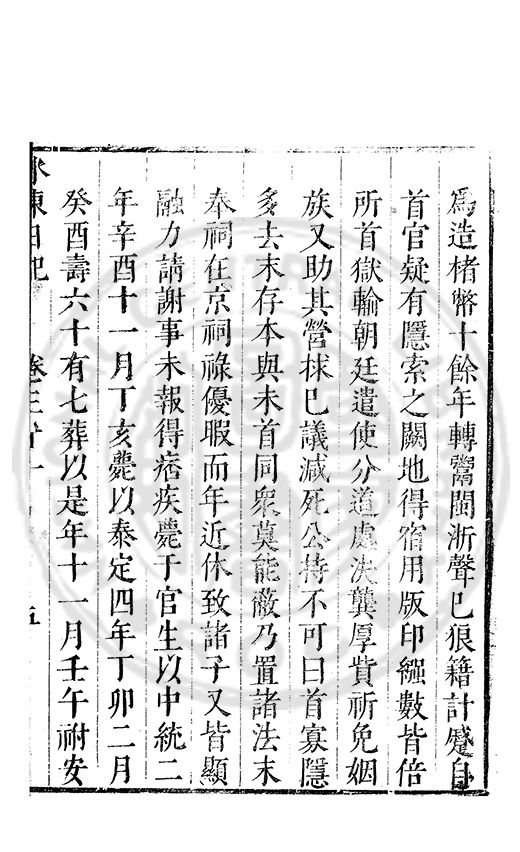 為造楮幣十餘年轉鬻閩浙聲已狼籍計蹙自
首官疑有隱索之闕地得宿用版印繦數皆倍
所首獄輸朝廷遣使分道處决龔厚貲祈免姻
族又助其營捄已議減死公持不可曰首寡隱
多去末存本與未首同衆莫能蔽乃置諸法末
奉祠在京祠祿優暇而年近休致諸子又皆顯
融力請謝事未報得痞疾薨于官生以中統二
年辛酉十一月丁亥薨以泰定四年丁卯二月
癸酉壽六十有七葬以是年十一月壬午祔安
水東日記 卷三十一 五